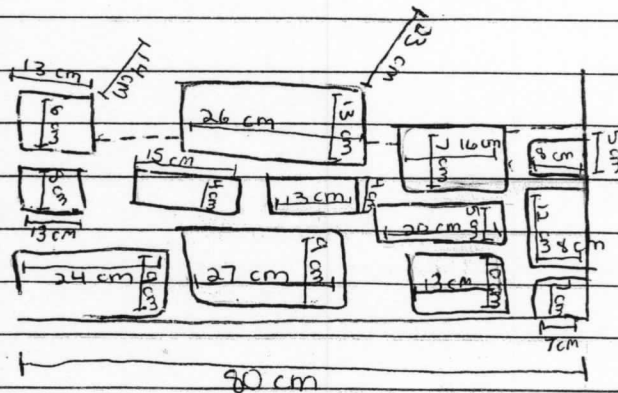 13 cm
14 cm
23 cm
6 cm
26 cm
13 cm
7 cm
16 cm
8 cm
5 cm
15 cm
8 cm
13 cm
4 cm
13 cm
4 cm
20 cm
5 cm
12
8 cm
24 cm
9 cm
27 cm
9 cm
13 cm
10 cm
7 cm
7 cm
80 cm